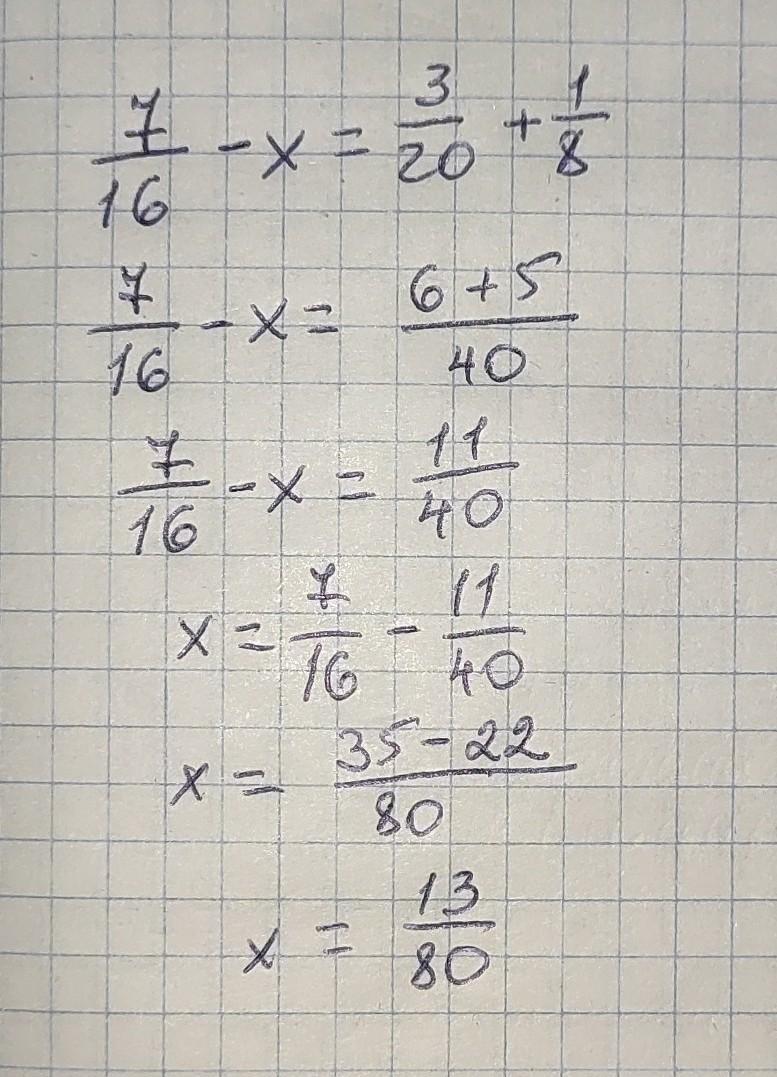 7/16 - x = 3/20 + 1/8
7/16 - x = (6 + 5)/40
7/16 - x = 11/40
x = 7/16 - 11/40
x = (35 - 22)/80
x = 13/80